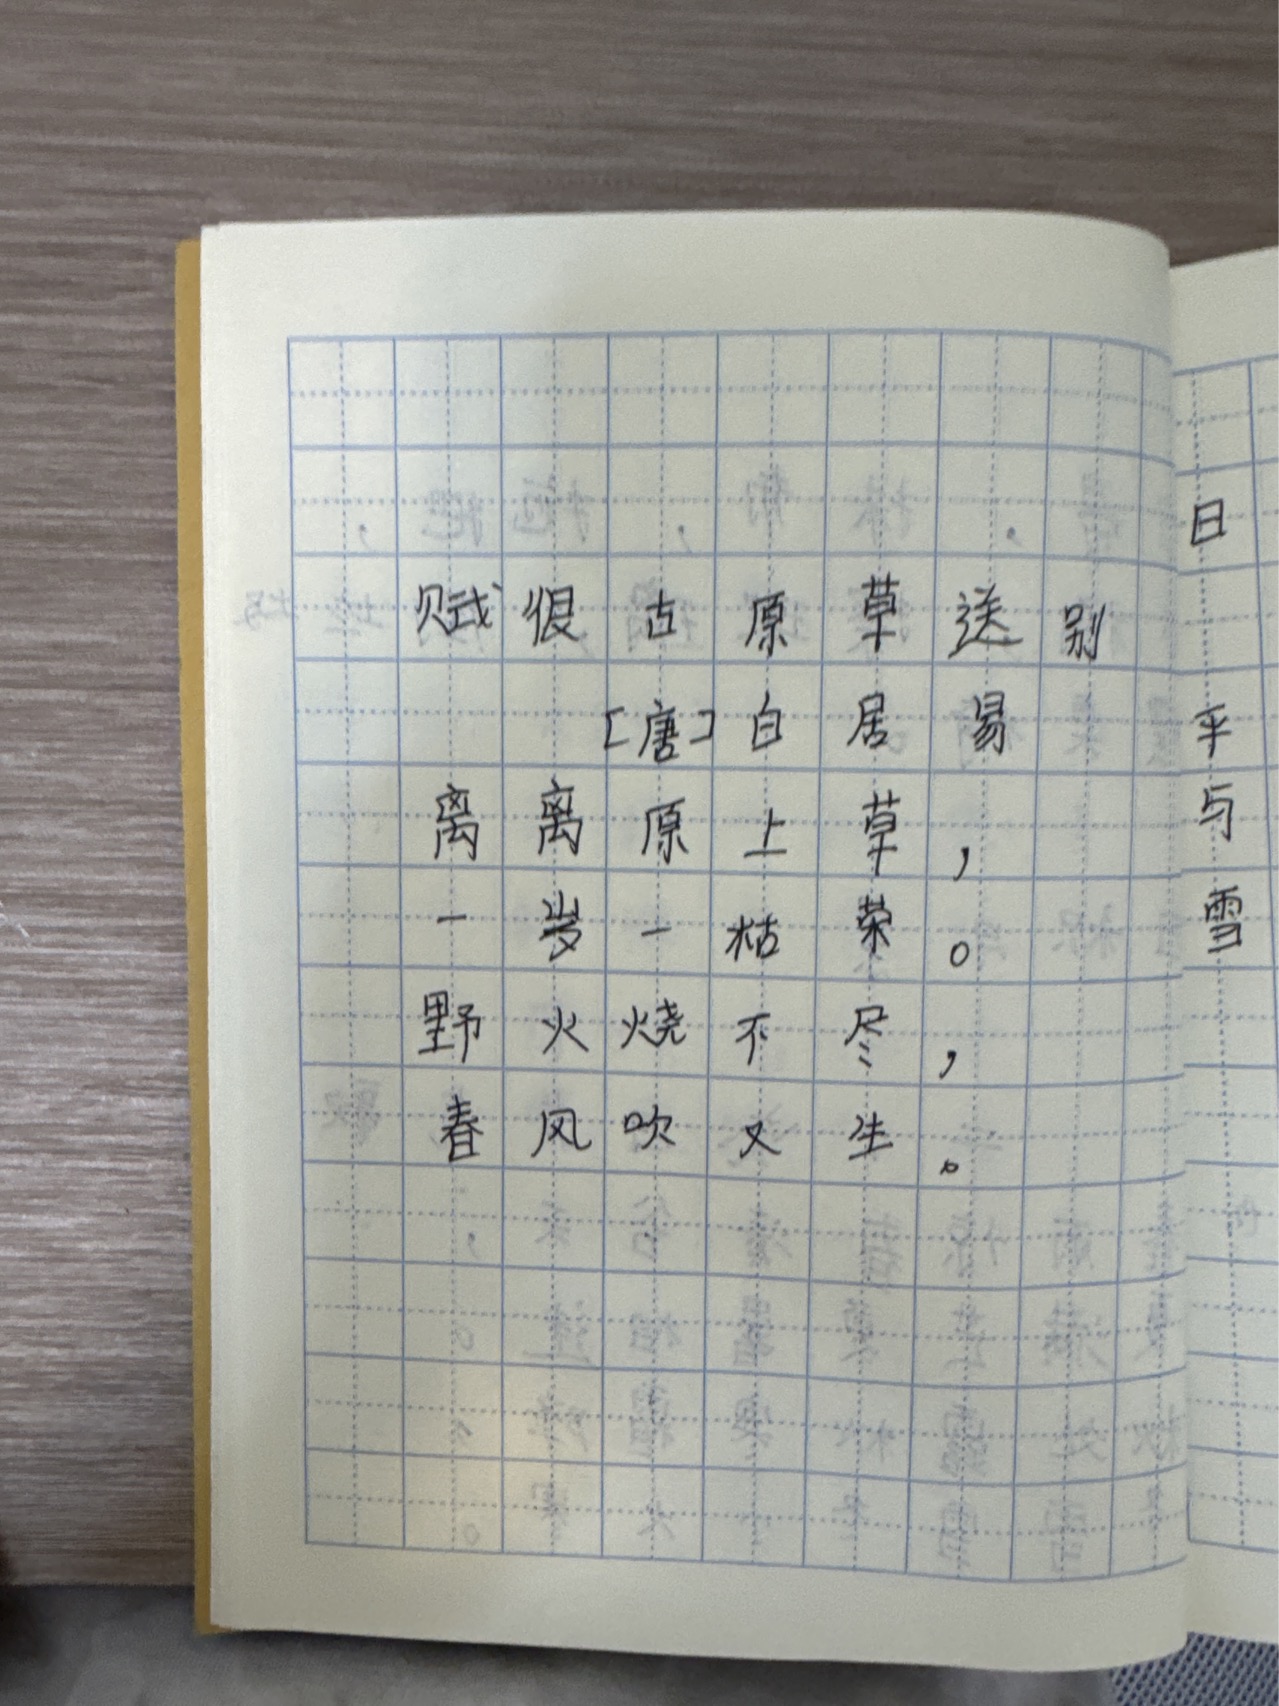 赋很古原草送别
[唐]白居易
离离原上草，
一岁一枯荣。
野火烧不尽，
春风吹又生。
日
平
与
雪